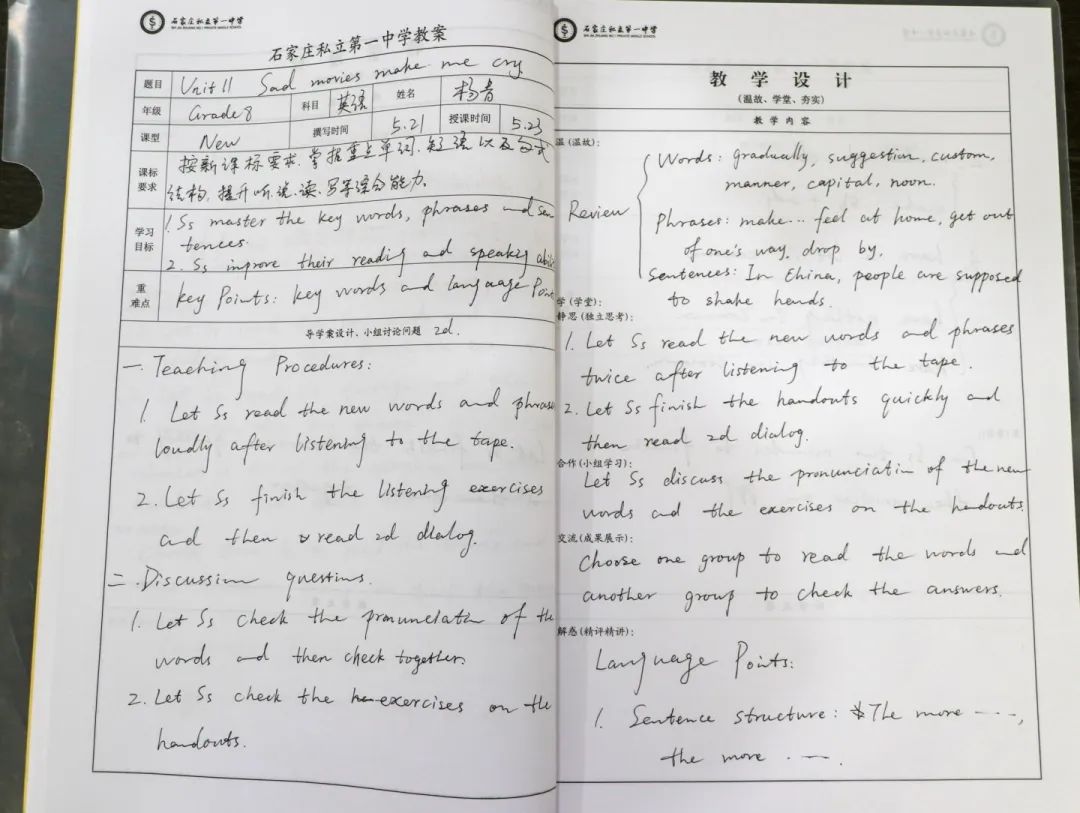 石家庄私立第一中学
SHI JIA ZHUANG NO.1 PRIVATE MIDDLE SCHOOL
石家庄私立第一中学教案
题目 Unit 11 Sad movies make me cry.
年级 Grade 8 科目 英语 姓名 杨青
课型 New 撰写时间 5.21 授课时间 5.23
课标要求 按新课标要求,掌握重点单词、短语以及句式
结构,提升听、说、读、写等综合能力.
学习目标 1. Ss master the key words, phrases and sen
tences.
2. Ss improve their reading and speaking abili
重难点 key Points: key words and language Point
导学案设计、小组讨论问题 2d.
一. Teaching Procedures:
1. Let Ss read the new words and phrase
loudly after listening to the tape.
2. Let Ss finish the listening exercises
and then read 2d dialog.
二. Discussion questions.
1. Let Ss check the pronunciation of the
words and then check together.
2. Let Ss check the exercises on the
handouts.
石家庄私立第一中学
SHI JIA ZHUANG NO.1 PRIVATE MIDDLE SCHOOL
教学设计
(温故、学堂、夯实)
教学内容
温(温故):
Review
Words: gradually, suggestion, custom,
manner, capital, noon.
Phrases: make... feel at home, get out
of one's way, drop by,
Sentences: In China, people are supposed
to shake hands.
学(学堂):
静思(独立思考):
1. Let Ss read the new words and phrases
twice after listening to the tape.
2. Let Ss finish the handouts quickly and
then read 2d dialog.
合作(小组学习):
Let Ss discuss the pronunciation of the new
words and the exercises on the handouts.
交流(成果展示):
Choose one group to read the words and
another group to check the answers.
解惑(精评精讲):
Language Points:
1. Sentence structure: The more ----,
the more ----.